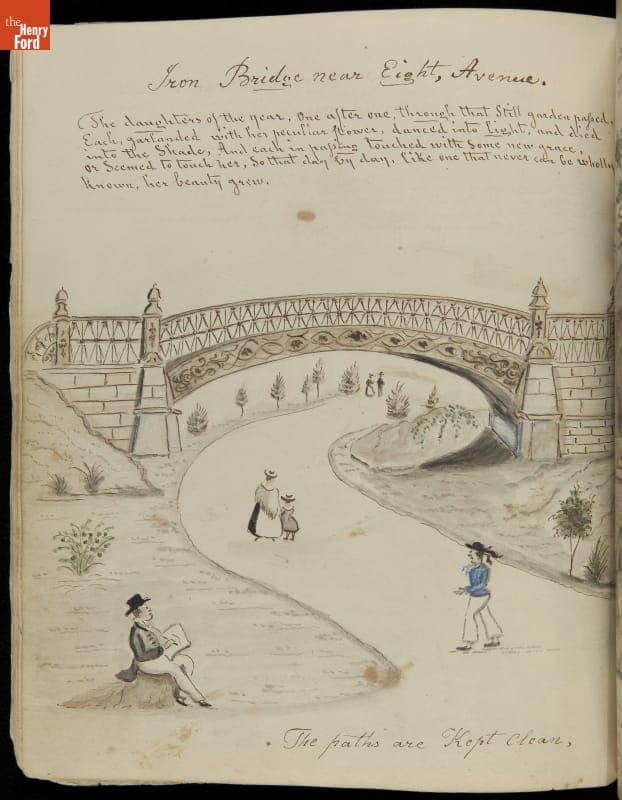 the
Henry
Ford
Iron Bridge near Eight, Avenue.
The daughters of the year, One after one, through that Still garden passed,
Each, garlanded with her peculiar flower, danced into Light, and died
into the Shade, And each in passing touched with Some new grace,
or Seemed to touch her, So that day by day, Like one that never can be wholly
Known, her beauty grew.
The paths are Kept Clean,